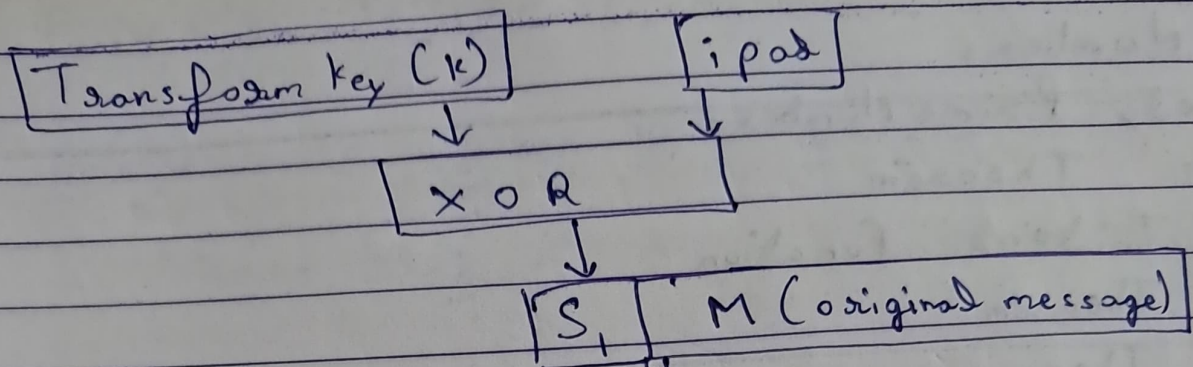 Transform key (k)
ipad
XOR
S1 M (original message)